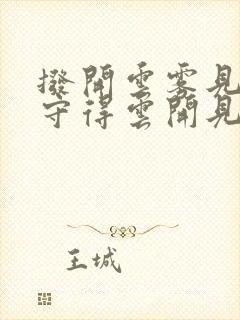 撥開雲霧見
守得雲開見
王城